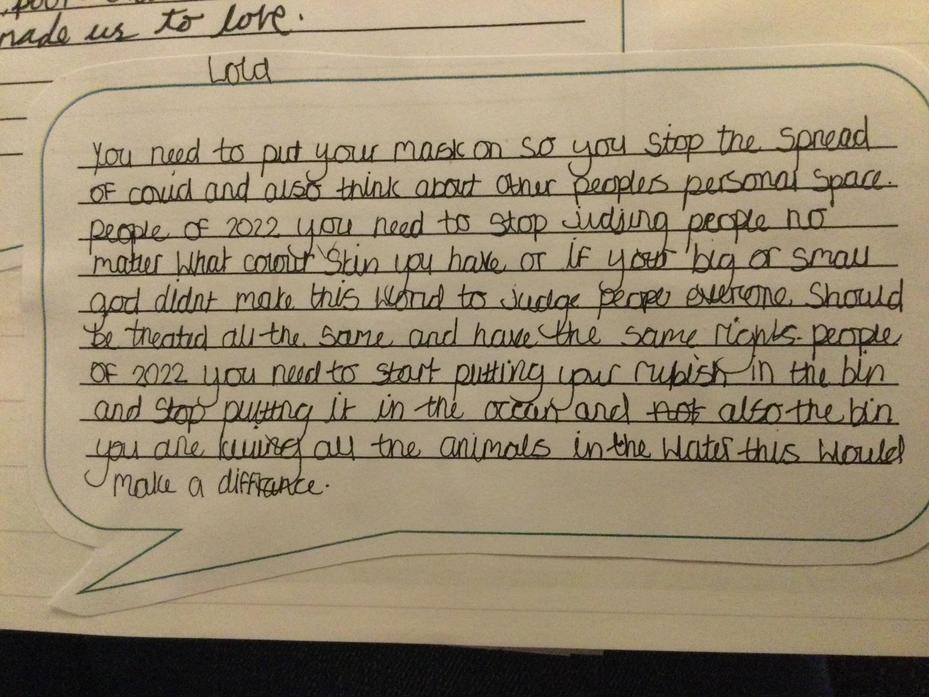 made us to love.
Lola
You need to put your mask on so you stop the spread
of covid and also think about other peoples personal space.
people of 2022 you need to stop judging people no
matter what colour skin you have or if your big or small
god didnt make this world to judge people everyone should
be treated all the same and have the same rights. people
of 2022 you need to start putting your rubish in the bin
and stop putting it in the ocean and not also the bin
you are killing all the animals in the water this would
make a diffrance.